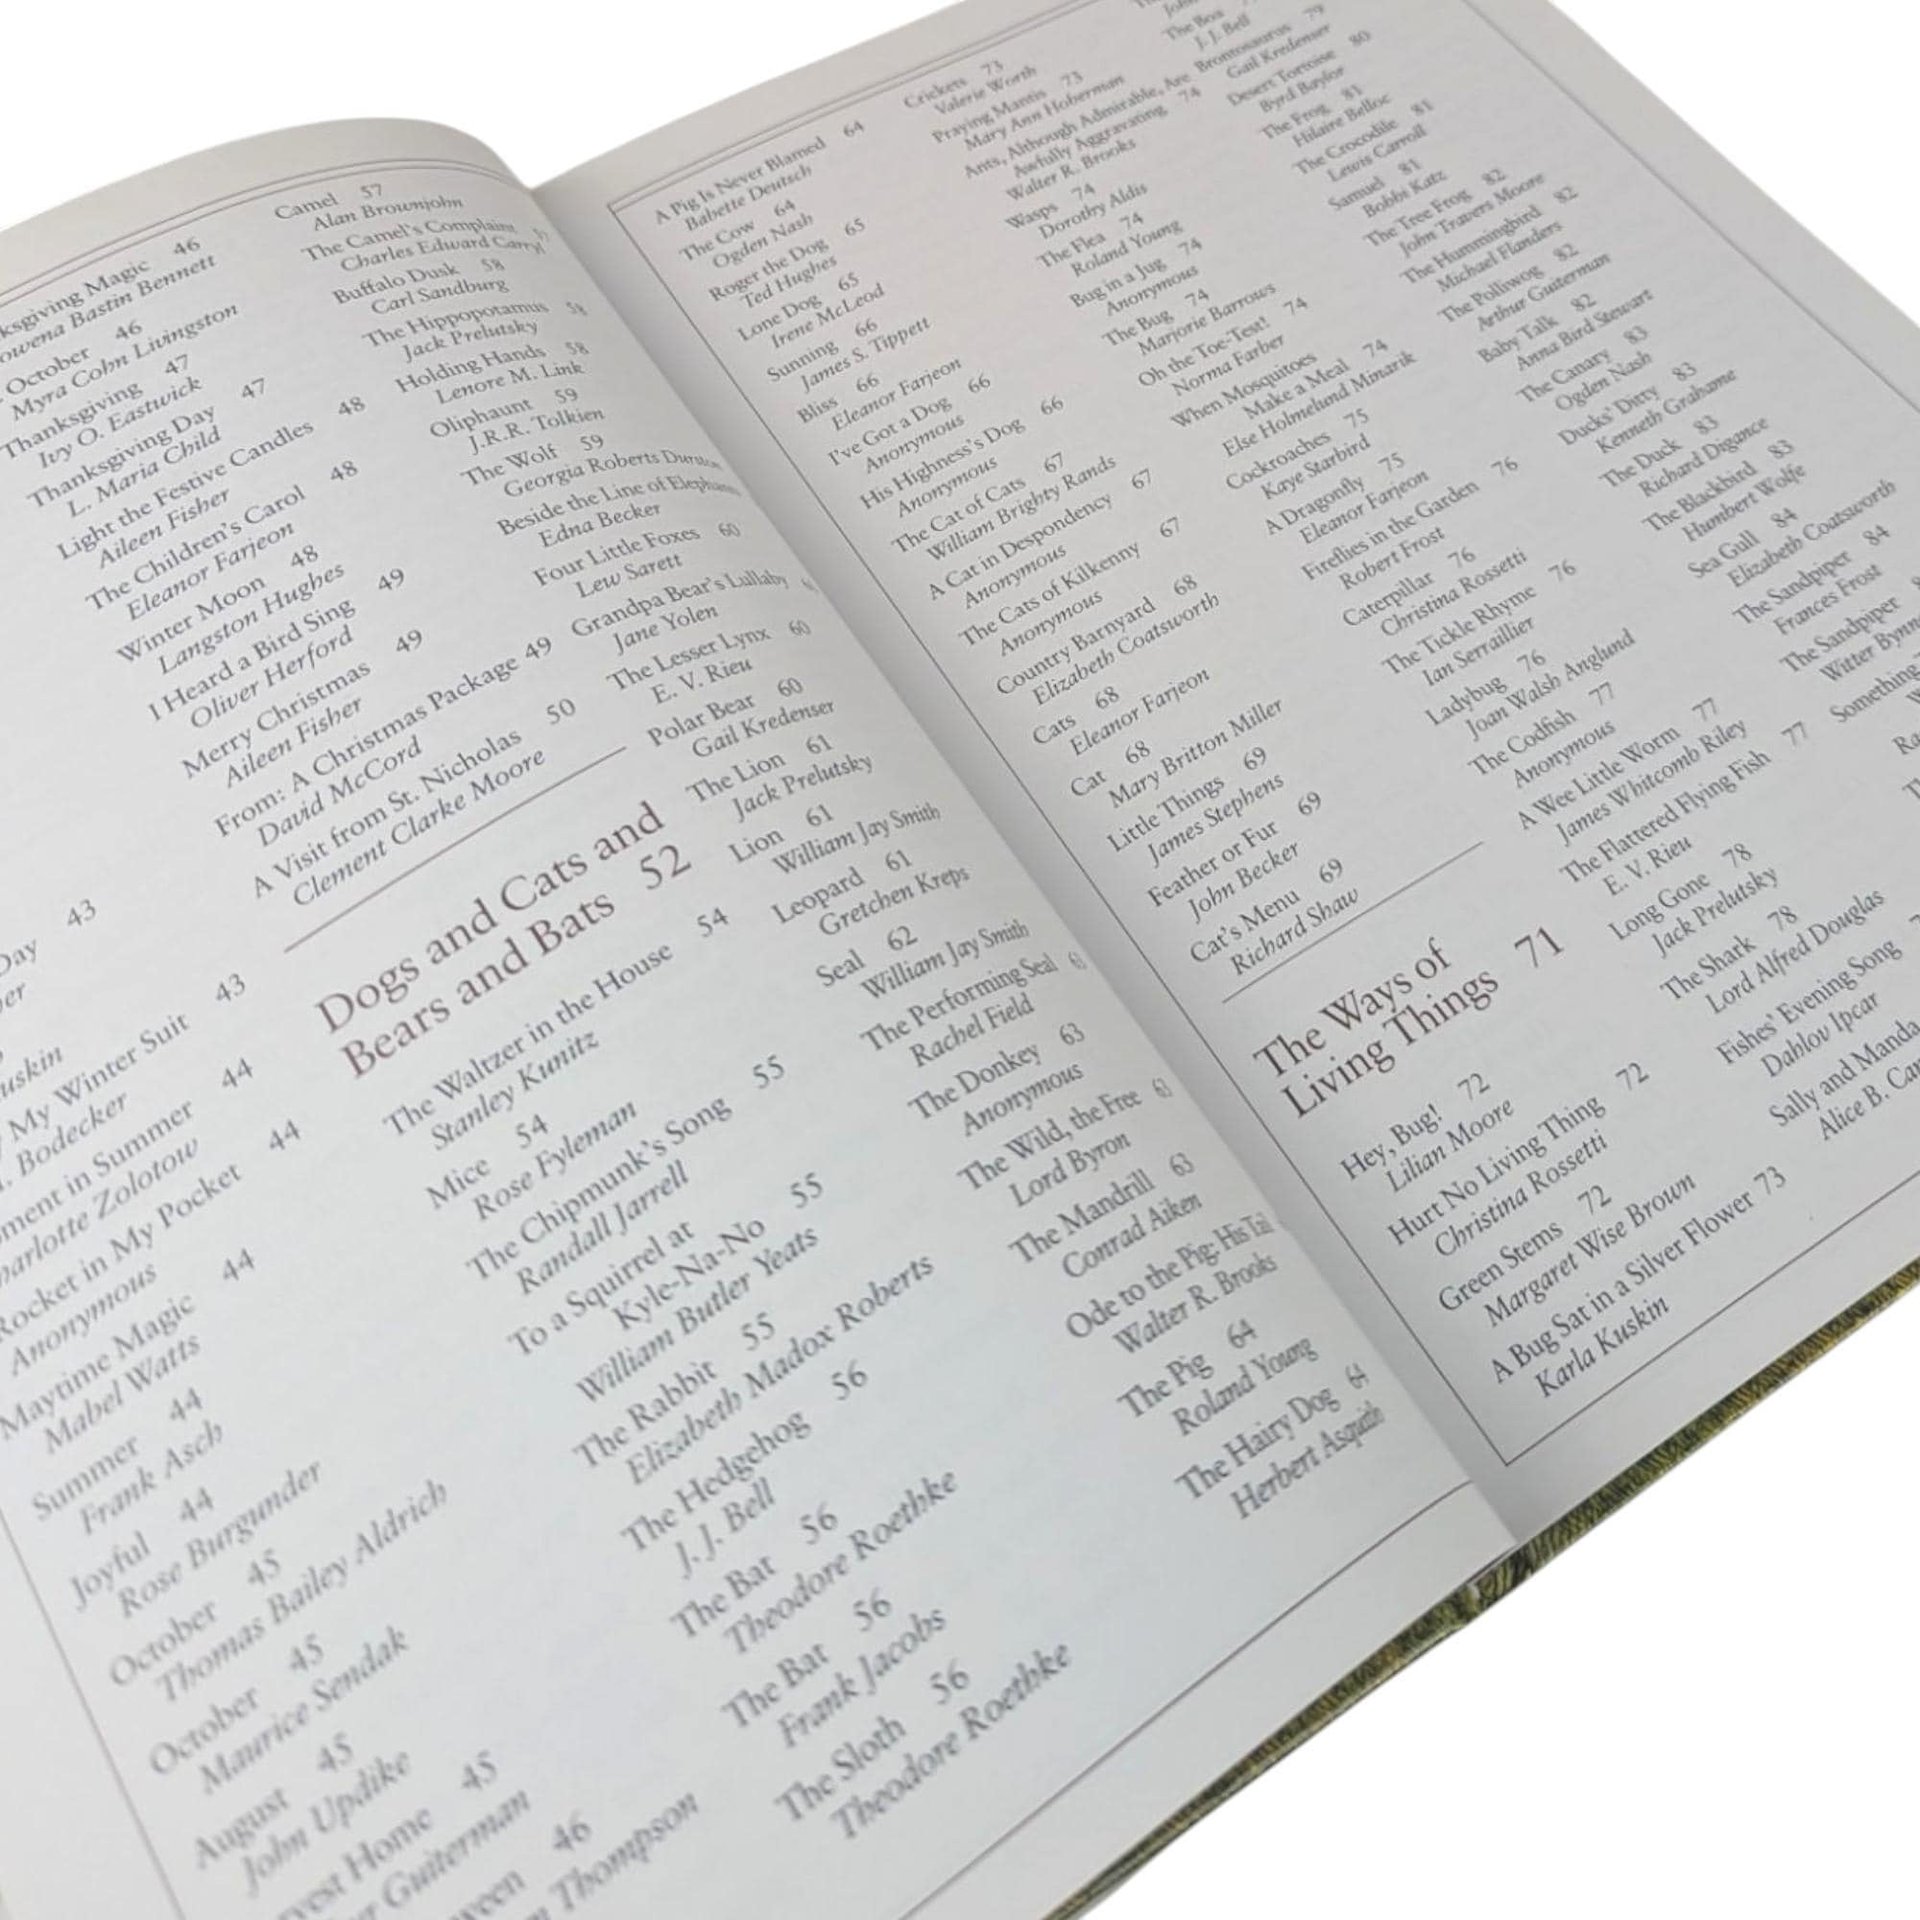 43
Day
43
My Winter Suit
Bodecker
44
in Summer
Charlotte Zolotow
44
Rocket in My Pocket
Anonymous
Maytime Magic 44
Mabel Watts
Summer 44
Frank Asch
Joyful 44
Rose Burgunder
October 45
Thomas Bailey Aldrich
October 45
Maurice Sendak
August 45
John Updike
Home 45
Guiterman
46
Thompson
Magic 46
Bennett
October 46
Myra Cohn Livingston
Thanksgiving 47
Ivy O. Eastwick
Thanksgiving Day 47
L. Maria Child
Light the Festive Candles 48
Aileen Fisher
The Children's Carol 48
Eleanor Farjeon
Winter Moon 48
Langston Hughes
I Heard a Bird Sing 49
Oliver Herford
Merry Christmas 49
Aileen Fisher
From: A Christmas Package 49
David McCord
A Visit from St. Nicholas 50
Clement Clarke Moore
Dogs and Cats and
Bears and Bats 52
The Waltzer in the House 54
Stanley Kunitz
Mice 54
Rose Fyleman
The Chipmunk's Song 55
Randall Jarrell
To a Squirrel at
Kyle-Na-No 55
William Butler Yeats
The Rabbit 55
Elizabeth Madox Roberts
The Hedgehog 56
J. J. Bell
The Bat 56
Theodore Roethke
The Bat 56
Frank Jacobs
The Sloth 56
Theodore Roethke
Camel 57
Alan Brownjohn
The Camel's Complaint 57
Charles Edward Carryl
Buffalo Dusk 58
Carl Sandburg
The Hippopotamus 58
Jack Prelutsky
Holding Hands 58
Lenore M. Link
Oliphaunt 59
J.R.R. Tolkien
The Wolf 59
Georgia Roberts Durston
Beside the Line of Elephants
Edna Becker
Four Little Foxes 60
Lew Sarett
Grandpa Bear's Lullaby
Jane Yolen
The Lesser Lynx 60
E. V. Rieu
Polar Bear 60
Gail Kredenser
The Lion 61
Jack Prelutsky
Lion 61
William Jay Smith
Leopard 61
Gretchen Kreps
Seal 62
William Jay Smith
The Performing Seal 63
Rachel Field
The Donkey 63
Anonymous
The Wild, the Free 63
Lord Byron
The Mandrill 63
Conrad Aiken
Ode to the Pig: His Tail
Walter R. Brooks
The Pig 64
Roland Young
The Hairy Dog 64
Herbert Asquith
A Pig Is Never Blamed 64
Babette Deutsch
The Cow 64
Ogden Nash
Roger the Dog 65
Ted Hughes
Lone Dog 65
Irene McLeod
Sunning 66
James S. Tippett
Bliss 66
Eleanor Farjeon
I've Got a Dog 66
Anonymous
His Highness's Dog 66
Anonymous
The Cat of Cats 67
William Brighty Rands
A Cat in Despondency 67
Anonymous
The Cats of Kilkenny 67
Anonymous
Country Barnyard 68
Elizabeth Coatsworth
Cats 68
Eleanor Farjeon
Cat 68
Mary Britton Miller
Little Things 69
James Stephens
Feather or Fur 69
John Becker
Cat's Menu 69
Richard Shaw
The Ways of
Living Things 71
Hey, Bug! 72
Lilian Moore
Hurt No Living Thing 72
Christina Rossetti
Green Stems 72
Margaret Wise Brown
A Bug Sat in a Silver Flower 73
Karla Kuskin
Crickets 73
Valerie Worth
Praying Mantis 73
Mary Ann Hoberman
Ants, Although Admirable, Are
Awfully Aggravating 74
Walter R. Brooks
Wasps 74
Dorothy Aldis
The Flea 74
Roland Young
Bug in a Jug 74
Anonymous
The Bug 74
Marjorie Barrows
Oh the Toe-Test! 74
Norma Farber
When Mosquitoes
Make a Meal 74
Else Holmelund Minarik
Cockroaches 75
Kaye Starbird
A Dragonfly 75
Eleanor Farjeon
Fireflies in the Garden 76
Robert Frost
Caterpillar 76
Christina Rossetti
The Tickle Rhyme 76
Ian Serraillier
Ladybug 76
Joan Walsh Anglund
The Codfish 77
Anonymous
A Wee Little Worm 77
James Whitcomb Riley
The Flattered Flying Fish 77
E. V. Rieu
Long Gone 78
Jack Prelutsky
The Shark 78
Lord Alfred Douglas
Fishes' Evening Song
Dahlov Ipcar
Sally and Manda
Alice B.
The Box
J. J. Bell
Brontosaurus 79
Gail Kredenser
Desert Tortoise 80
Byrd Baylor
The Frog 81
Hilaire Belloc
The Crocodile 81
Lewis Carroll
Samuel 81
Bobbi Katz
The Tree Frog 82
John Travers Moore
The Hummingbird 82
Michael Flanders
The Polliwog 82
Arthur Guiterman
Baby Talk 82
Anna Bird Stewart
The Canary 83
Ogden Nash
Ducks' Ditty 83
Kenneth Grahame
The Duck 83
Richard Digance
The Blackbird 83
Humbert Wolfe
Sea Gull 84
Elizabeth Coatsworth
The Sandpiper 84
Frances Frost
The Sandpiper
Witter
Something